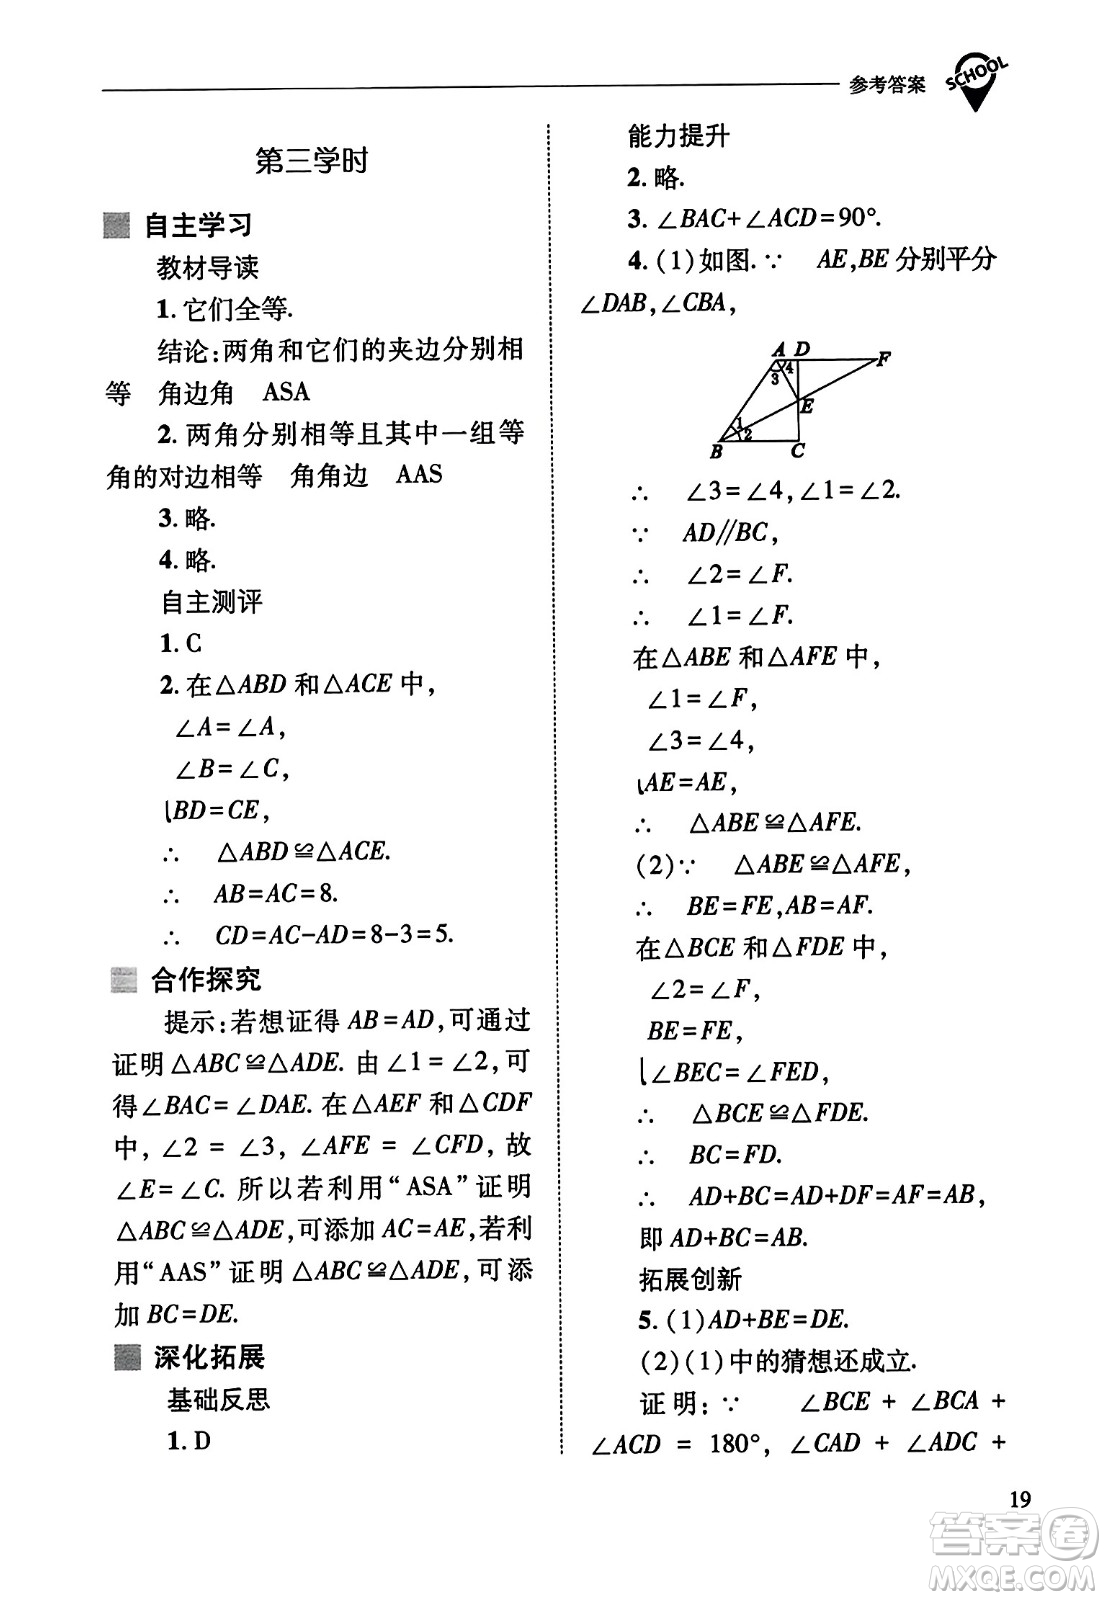 参考答案
SCHOOL
第三学时
自主学习
教材导读
1. 它们全等.
结论:两角和它们的夹边分别相
等 角边角 ASA
2. 两角分别相等且其中一组等
角的对边相等 角角边 AAS
3. 略.
4. 略.
自主测评
1. C
2. 在△ABD 和△ACE 中,
∠A=∠A,
∠B=∠C,
BD=CE,
∴ △ABD≌△ACE.
∴ AB=AC=8.
∴ CD=AC-AD=8-3=5.
合作探究
提示:若想证得 AB=AD,可通过
证明△ABC≌△ADE. 由∠1=∠2,可
得∠BAC=∠DAE. 在△AEF 和△CDF
中, ∠2 = ∠3, ∠AFE = ∠CFD, 故
∠E=∠C. 所以若利用“ASA”证明
△ABC≌△ADE,可添加 AC=AE,若利
用“AAS”证明△ABC≌△ADE,可添
加 BC=DE.
深化拓展
基础反思
1. D
能力提升
2. 略.
3. ∠BAC+∠ACD=90°.
4. (1)如图. ∵ AE,BE 分别平分
∠DAB,∠CBA,
A D F
3 4
E
1 2
B C
∴ ∠3=∠4,∠1=∠2.
∵ AD∥BC,
∴ ∠2=∠F.
∴ ∠1=∠F.
在△ABE 和△AFE 中,
∠1=∠F,
∠3=∠4,
AE=AE,
∴ △ABE≌△AFE.
(2)∵ △ABE≌△AFE,
∴ BE=FE,AB=AF.
在△BCE 和△FDE 中,
∠2=∠F,
BE=FE,
∠BEC=∠FED,
∴ △BCE≌△FDE.
∴ BC=FD.
∴ AD+BC=AD+DF=AF=AB,
即 AD+BC=AB.
拓展创新
5. (1)AD+BE=DE.
(2)(1)中的猜想还成立.
证明: ∵ ∠BCE + ∠BCA +
∠ACD = 180°, ∠CAD + ∠ADC +
19
答案圈
MXQE.COM